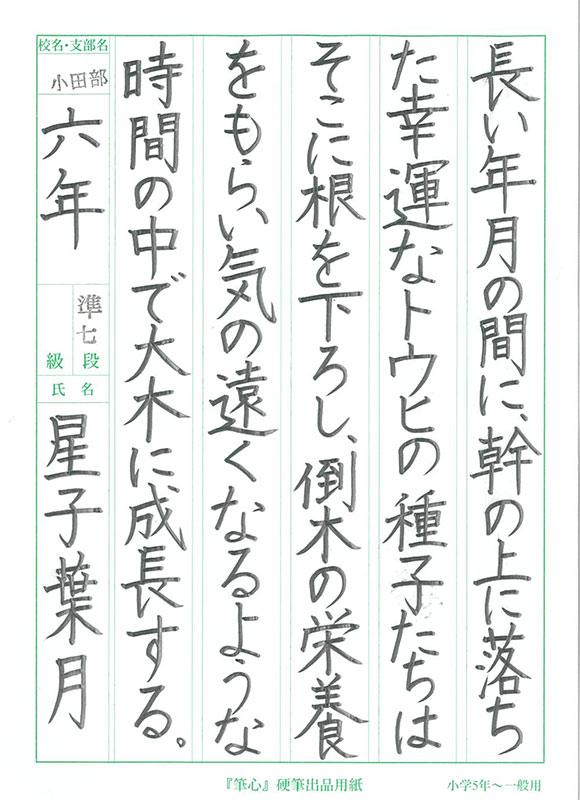 長い年月の間に、幹の上に落ち
た幸運なトウヒの種子たちは
そこに根を下ろし、倒木の栄養
をもらい、気の遠くなるような
時間の中で大木に成長する。
校名・支部名
小田部
六年
準七
級 段
氏名
星子葉月
『筆心』硬筆出品用紙
小学5年〜一般用